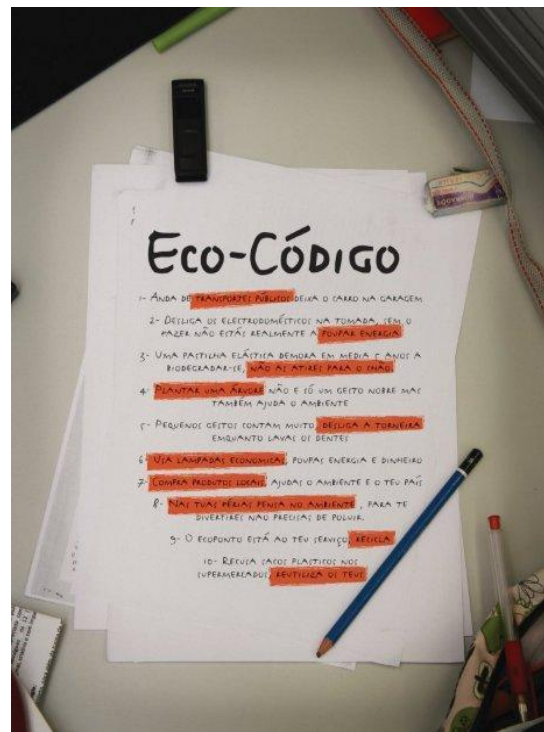 Eco-Código
1- Anda de transportes públicos deixa o carro na garagem
2- Desliga os electrodomésticos na tomada, sem o
fazer não estás realmente a poupar energia
3- Uma pastilha elástica demora em média 5 anos a
biodegradar-se, não as atires para o chão
4- Plantar uma árvore não e só um gesto nobre mas
também ajuda o ambiente
5- Pequenos gestos contam muito, desliga a torneira
emquanto lavas os dentes
6- Usa lampadas economicas, poupas energia e dinheiro
7- Compra produtos locais, ajudas o ambiente e o teu país
8- Nas tuas férias pensa no ambiente, para te
divertires não precisas de poluir.
9- O ecoponto está ao teu serviço, recicla
10- Recusa sacos plasticos nos
supermercados, reutiliza os teus